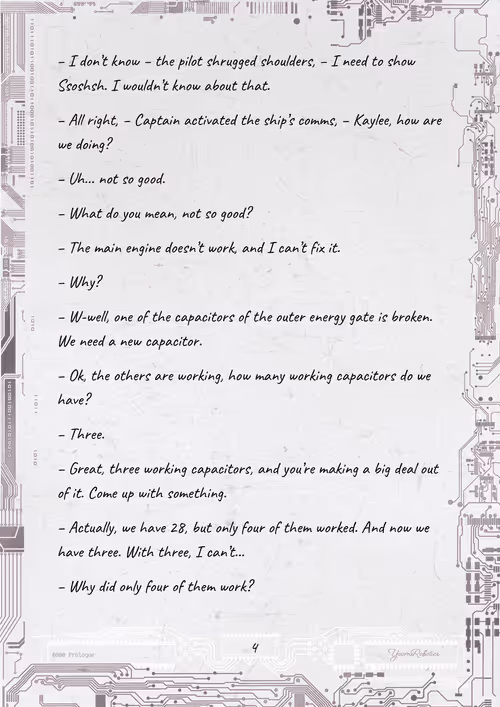 – I don't know – the pilot shrugged shoulders, – I need to show
Ssoshsh. I wouldn't know about that.
– All right, – Captain activated the ship's comms, – Kaylee, how are
we doing?
– Uh... not so good.
– What do you mean, not so good?
– The main engine doesn't work, and I can't fix it.
– Why?
– W-well, one of the capacitors of the outer energy gate is broken.
We need a new capacitor.
– Ok, the others are working, how many working capacitors do we
have?
– Three.
– Great, three working capacitors, and you're making a big deal out
of it. Come up with something.
– Actually, we have 28, but only four of them worked. And now we
have three. With three, I can't...
– Why did only four of them work?
4
0000 Prologue